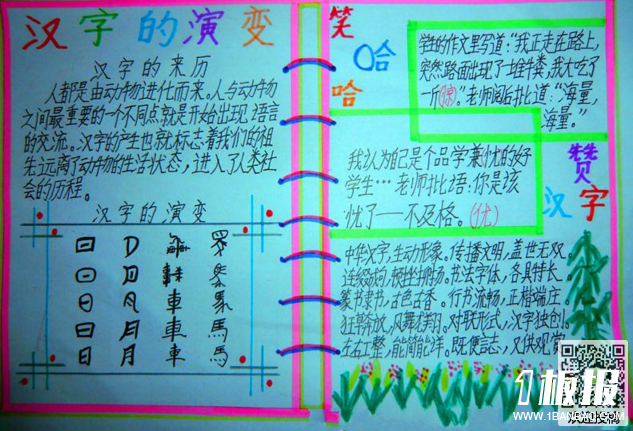 汉字的演变
汉字的来历
人都是由动物进化而来。人与动物
之间最重要的一个不同点就是开始出现语言
的交流。汉字的产生也就标志着我们的祖
先远离了动物的生活状态，进入了人类社
会的历程。
汉字的演变
日 車
日 月 車 馬
日 月 車 馬
笑
哈
哈
学生的作文里写道：“我正走在路上，
突然路面出现了一堆牛粪，我大吃了
一斤(惊)。”老师阅后批道：“海量，
海量。”
我认为自己是个品学兼(忧)的好
学生…老师批语：你是该
忧了——不及格。(优)
赞
汉字
中华汉字，生动形象。传播文明，盖世无双。
连绵放向，顿挫抑扬。书法字体，各具特长。
篆书隶书，古色古香。行书流畅，正楷端庄。
狂草奔放，凤舞龙翔。对联形式，汉字独创。
左右工整，能简能详。既便言志，又供观赏
板报
WWW.1BANBAO.COM
欢迎投稿